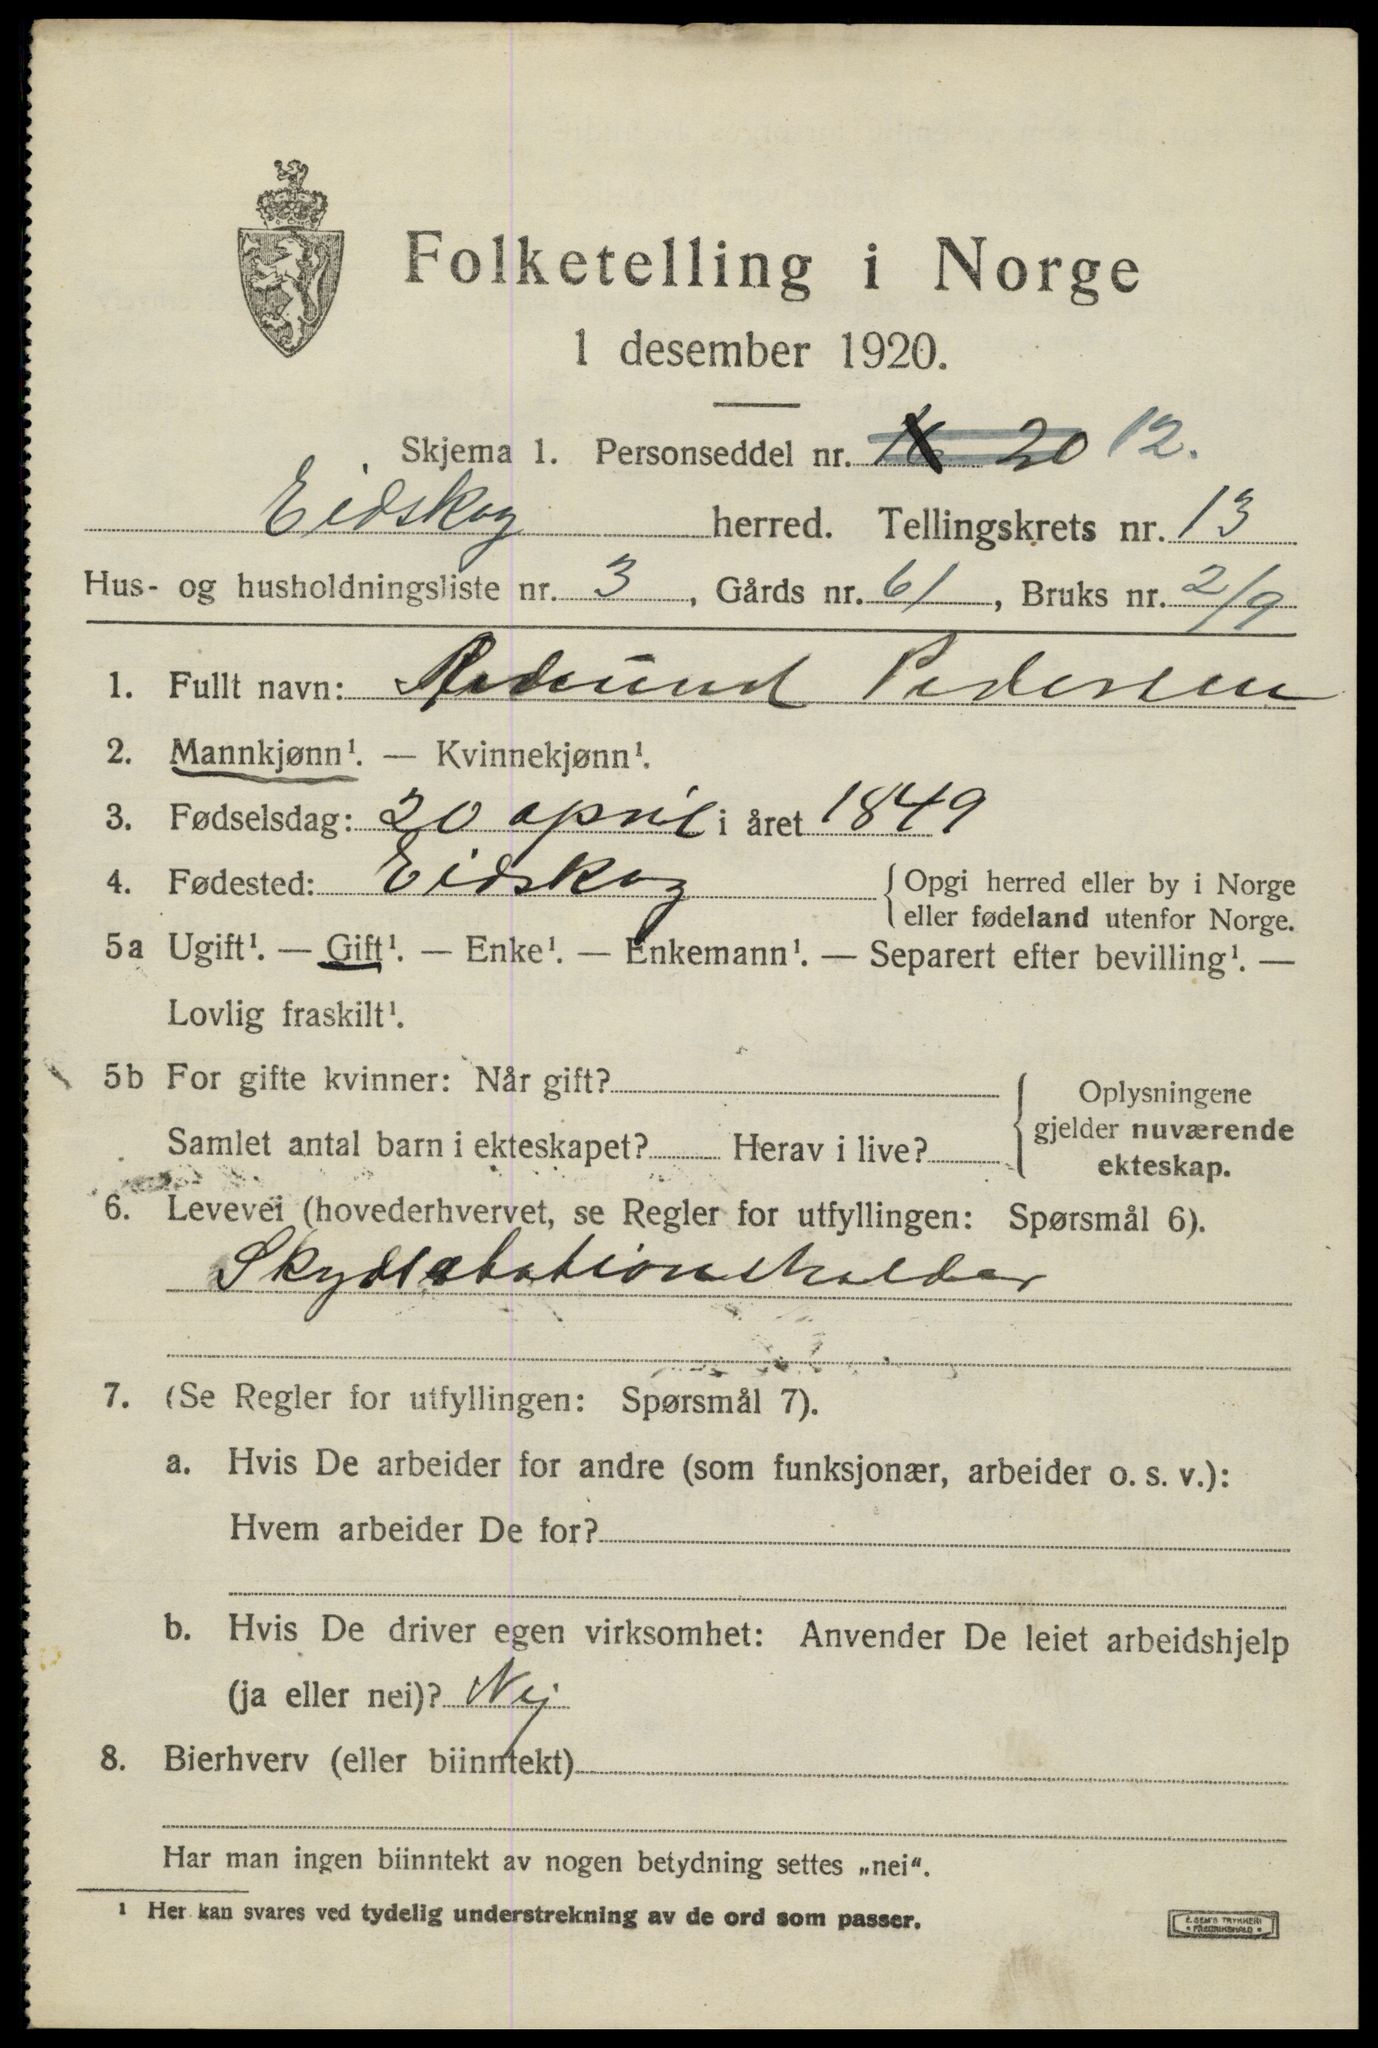 Folketelling i Norge
1 desember 1920.
Skjema 1. Personseddel nr. 20 12.
Eidskog herred. Tellingskrets nr. 13
Hus- og husholdningsliste nr. 3, Gårds nr. 61, Bruks nr. 2/9
1. Fullt navn: Pedersen
2. Mannkjønn¹. — Kvinnekjønn¹.
3. Fødselsdag: 20 april i året 1849
4. Fødested: Eidskog {Opgi herred eller by i Norge
eller fødeland utenfor Norge.
5a Ugift¹. — Gift¹. — Enke¹. — Enkemann¹. — Separert efter bevilling¹. —
Lovlig fraskilt¹.
5b For gifte kvinner: Når gift?
Samlet antal barn i ekteskapet? Herav i live?
Oplysningene
gjelder nuværende
ekteskap.
6. Levevei (hovederhvervet, se Regler for utfyllingen: Spørsmål 6).
Skydsstationsholder
7. (Se Regler for utfyllingen: Spørsmål 7).
a. Hvis De arbeider for andre (som funksjonær, arbeider o. s. v.):
Hvem arbeider De for?
b. Hvis De driver egen virksomhet: Anvender De leiet arbeidshjelp
(ja eller nei)? Nej
8. Bierhverv (eller biinntekt)
Har man ingen biinntekt av nogen betydning settes „nei“.
¹ Her kan svares ved tydelig understrekning av de ord som passer.
E. SEM'S TRYKKERI
• FREDRIKSHALD •